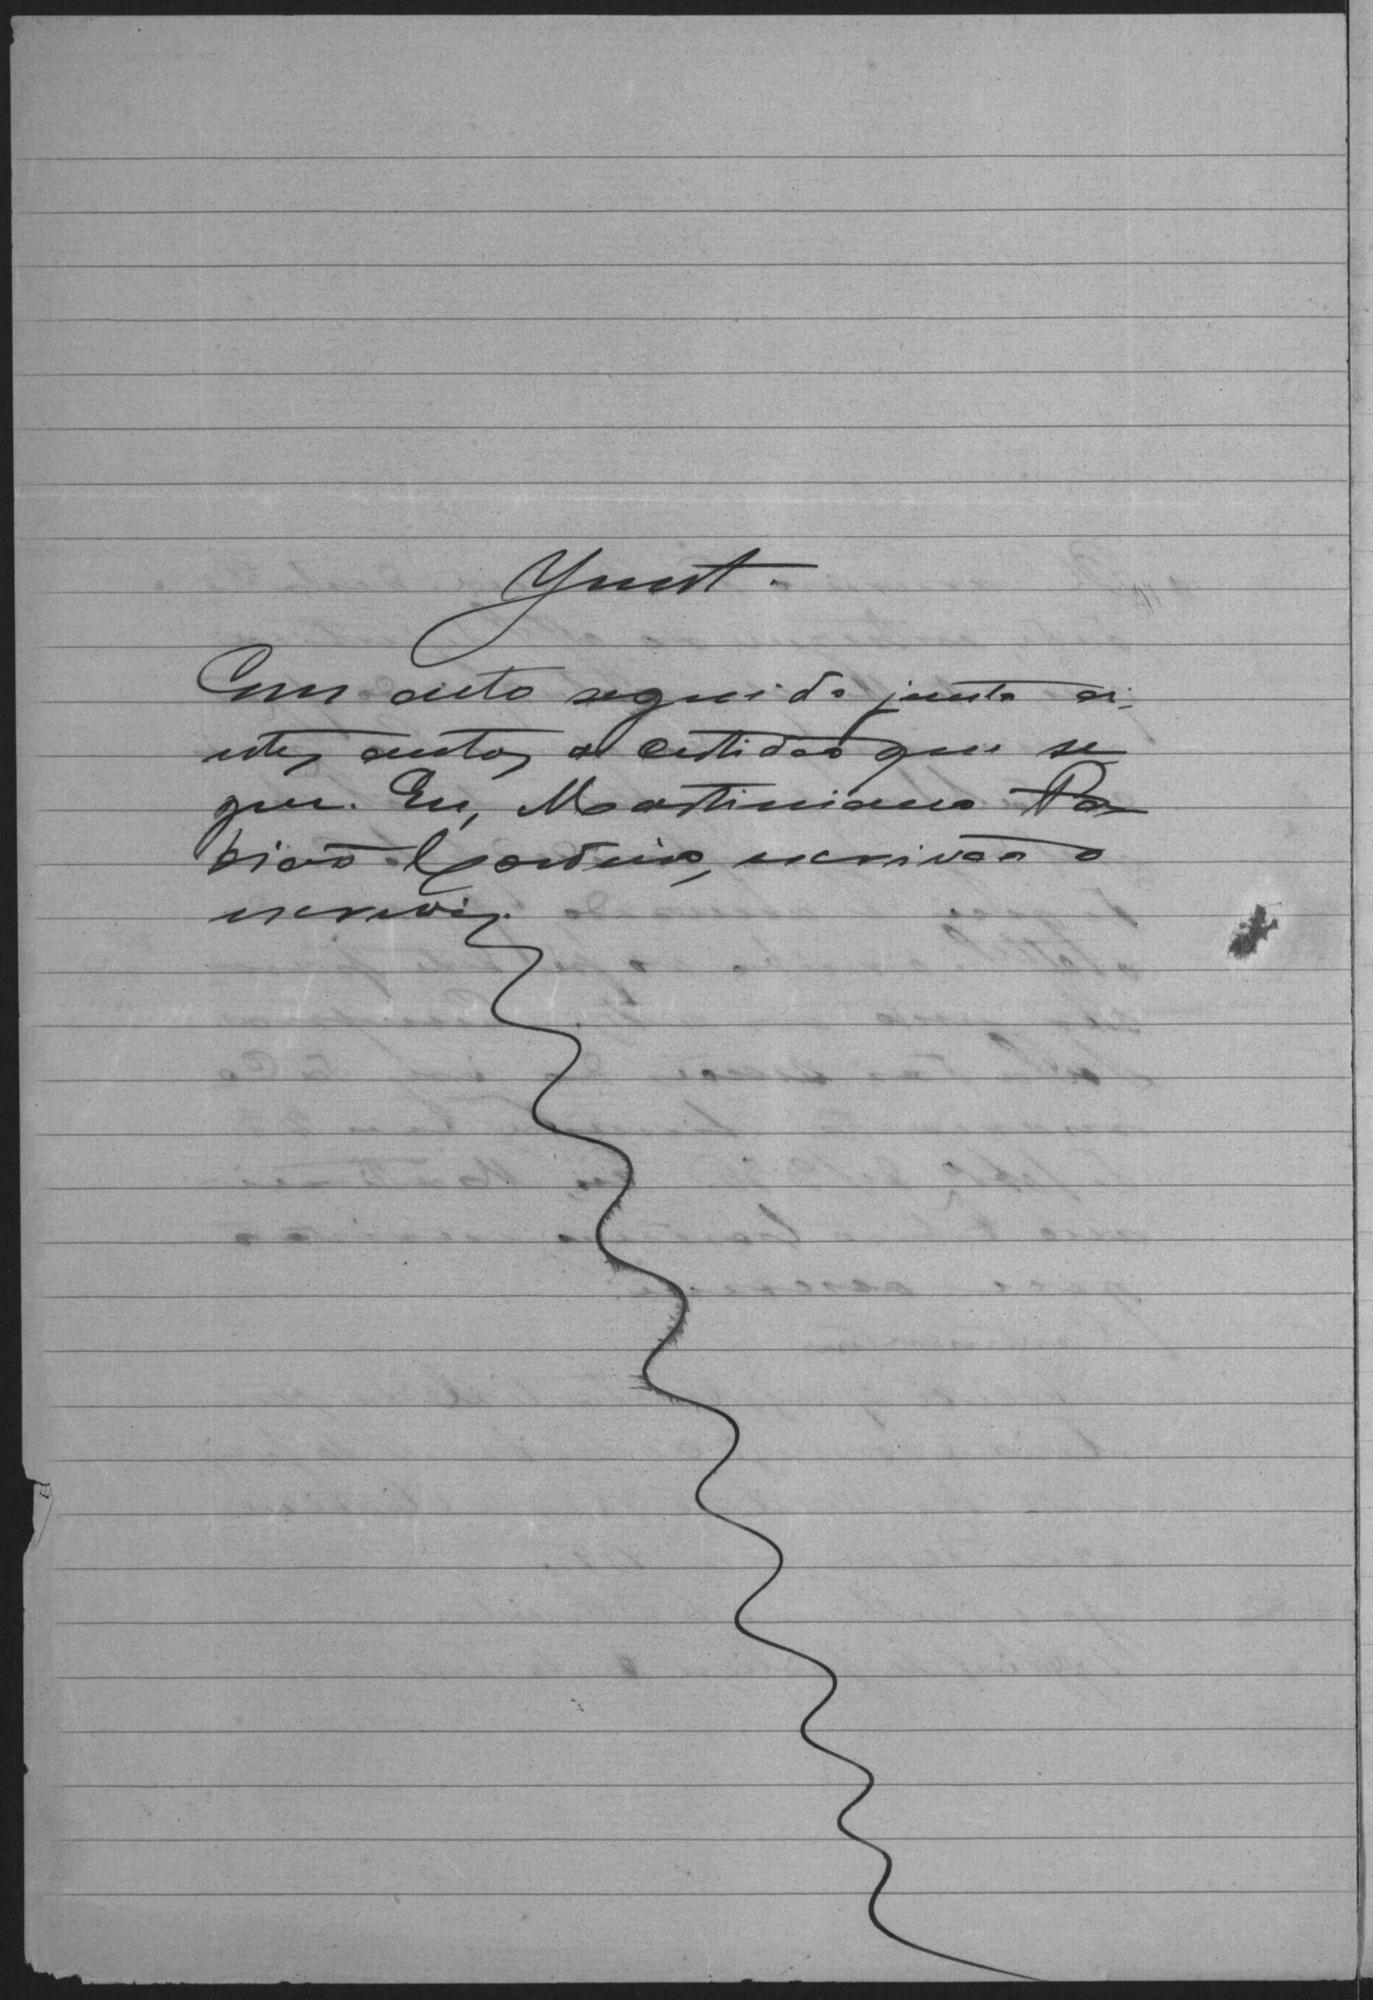 Junt.
Em acto seguido junto a
estes autos a certidão que se
gue. Eu, Martiniano
Cordeiro, escrivão o
escrevi.